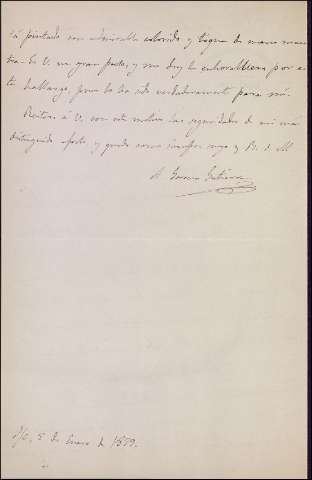 tá pintado con admirable colorido y toques de mano maes-
tra. Es V. un gran poeta, y me doy la enhorabuena por es-
te hallazgo, pues lo ha sido verdaderamente para mí.
Reitero á V. con este motivo las seguridades de mi más
distinguido afecto, y quedo como siempre suyo q. B. s. M.
A. García Gutiérrez
S/C, 5 de Enero de 1879.